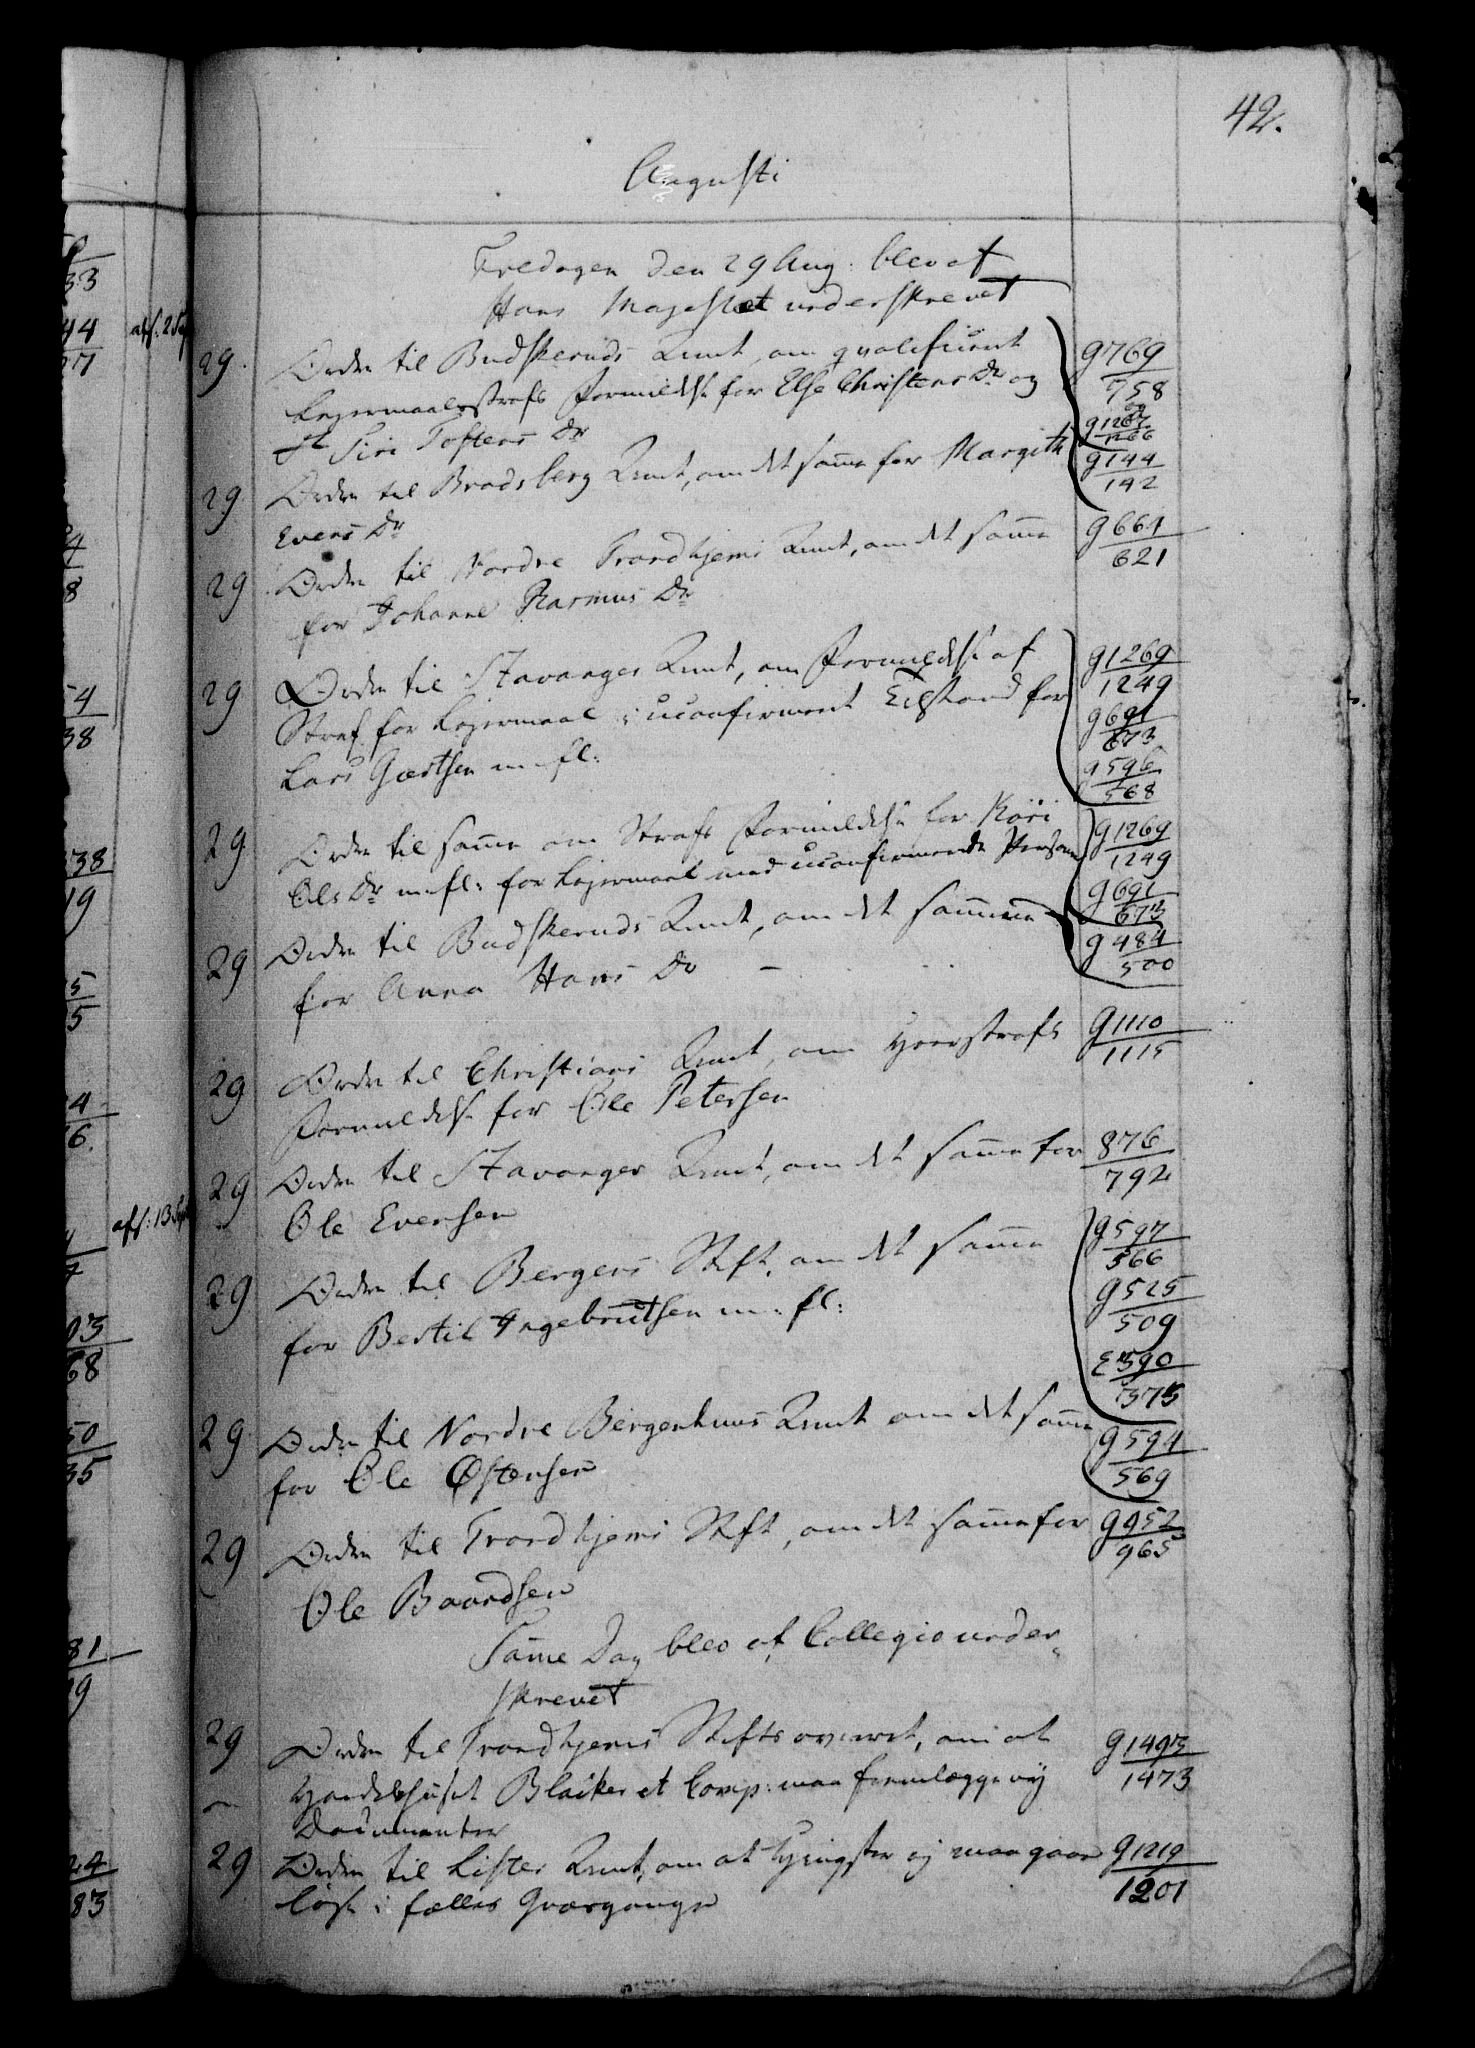 42.
Augusti
Fredagen den 29 Aug: blev af
Hans Majestet underskrevet
29. Ordre til Budskeruds Amt, om qvalificeret
Lejermaalsstrafs Formildelse for Else Christens Dr og
Siri Tostens Dr
g 769
758
og
g 1267
1266
29 Ordre til Bradsberg Amt, om det samme for Margith
Evens Dr
g 144
142
29 Ordre til Nordre Trondhjems Amt, om det samme
for Johanne Rasmus Dr
g 661
621
29 Ordre til Stavanger Amt, om Formildelse af
Straf for Lejermaal i uconfirmeret Tilstand for
Lars Giertsen m: fl:
g 1269
1249
g 691
673
g 596
568
29 Ordre til samme om Strafs Formildelse for Kari
Ols Dr m: fl: for Lejermaal med uconfirmerede Personer
g 1269
1249
g 691
673
29 Ordre til Budskeruds Amt, om det samme
for Anna Hans Dr
g 484
500
29 Ordre til Christians Amt, om Hoerstrafs
Formildelse for Ole Petersen
g 1110
1115
29 Ordre til Stavanger Amt, om det samme for
Ole Evensen
876
792
29 Ordre til Bergens Stift, om det samme
for Bertil Ingebretsen m: fl:
g 597
566
g 525
509
590
575
29 Ordre til Nordre Bergenhuus Amt om det samme
for Ole Østensen
g 594
569
29 Ordre til Trondhjems Stift, om det samme for
Ole Baardsen
g 952
965
Samme Dag blev af Collegio under-
skrevet
29 Ordre til Trondhjems Stiftsøvrret, om at
Handelshuset Blacker et Comp: maa fremlægge nÿ
Documenter
g 1495
1473
29 Ordre til Lister Amt, om at Hingster ej maa gaae
løse i fælles Græsgange
g 1219
1201